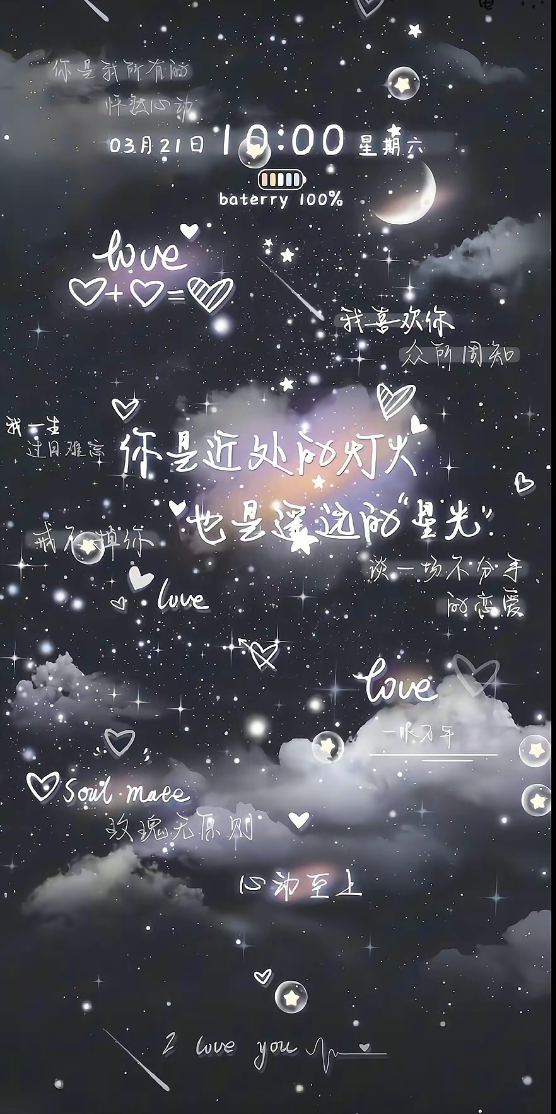 你是我所有的
怦然心动
03月21日 10:00 星期六
baterry 100%
love
+ =
我喜欢你
众所周知
我一生
过目难忘
你是近处的灯火
也是遥远的“星光”
戒不掉你
谈一场不分手
的恋爱
love
love
一眼万年
Soul mate
玫瑰无原则
心动至上
I love you